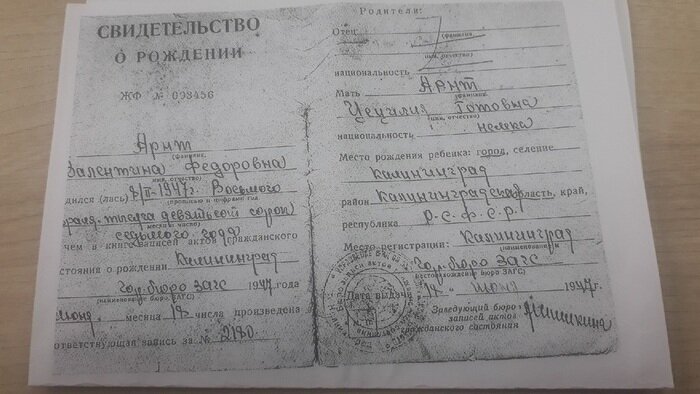 СВИДЕТЕЛЬСТВО
О РОЖДЕНИИ
ЖФ № 098456
Арнт
(фамилия,
Валентина Федоровна
имя, отчество)
дился (лась) 8/II-1947г. Восьмого
(прописью и цифрами год
девятьсот сорок
месяц и число)
седьмого года
чем в книге записей актов гражданского
стояния о рождении Калининград
Гор. бюро ЗАГС 1947 года
(наименование бюро ЗАГС)
июня месяца 14 числа произведена
ответствующая запись за № 2180
Родители:
Отец
(фамилия,
имя, отчество)
национальность
Мать Арнт
(фамилия,
Цецилия Готовна
имя, отчество)
национальность немка
Место рождения ребенка: город, селение
Калининград
район Калининградская область, край,
республика Р.С.Ф.С.Р.
Место регистрации: Калининград
(наименование и
Гор. бюро ЗАГС
местонахождение бюро ЗАГС)
Дата выдачи 14 июня 1947г.
Заведующий бюро
записей актов
гражданского состояния